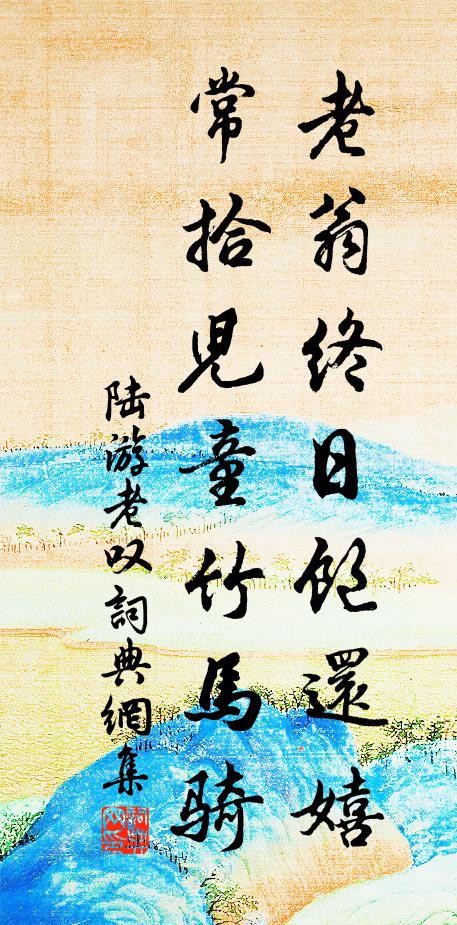 老翁終日飽還嬉
常拾兒童竹馬騎
陆游老叹詞典網集